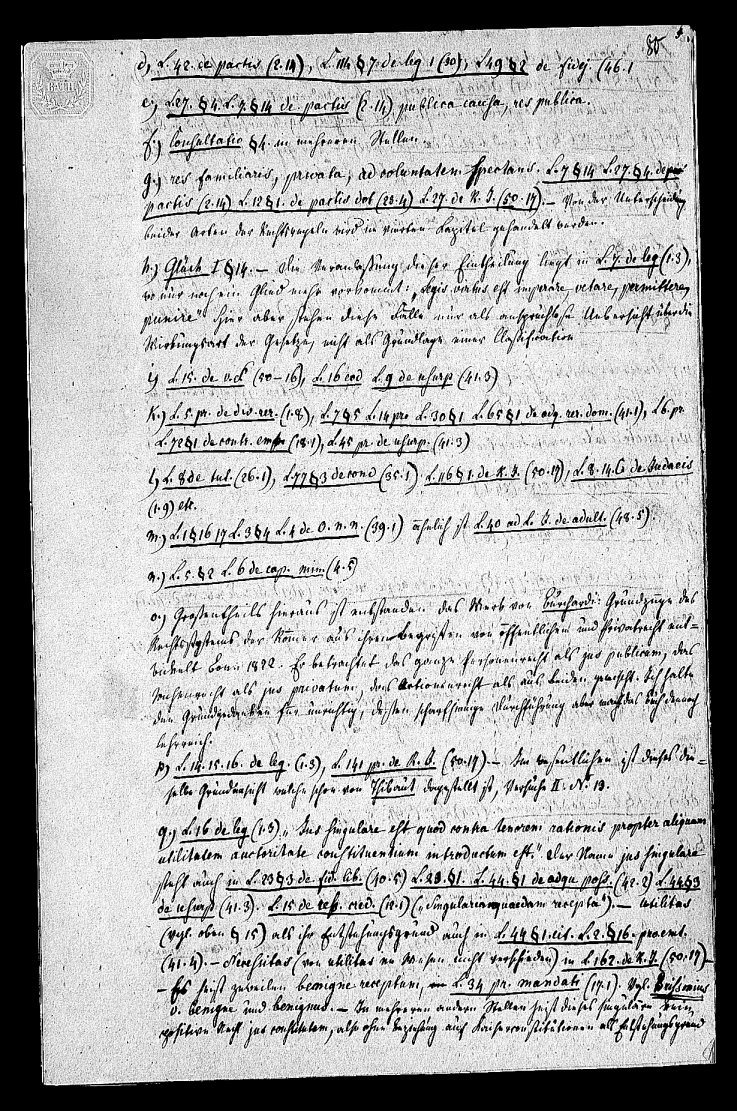 80
d.) L. 42. de pactis (2.14), L. 114 § 7. de leg. 1 (30), L 49 § 2 de fidej. (46.1
e.) L 27. § 4. L. 7. § 14 de pactis (2.14) publica causa, res publica.
f.) Consultatio § 4. in mehreren Stellen.
g.) res familiaris, privata, ad voluntatem spectans. L. 7 § 14 L. 27. § 4. de
pactis (2.14) L. 12 § 1. de pactis dot (23.4) L. 27. de R. J. (50.17). – Von der Unterscheidung
beider Arten der Rechtsregeln wird im vierten Kapitel gehandelt werden.
h.) Glück I § 14. – Die Veranlassung dieser Eintheilung liegt in L. 7. de leg (1.3),
wo nur noch ein Glied mehr vorkommt: „legis virtus est imperare, vetare, permittere,
punire“. Hier aber stehen diese Fälle nur als anspruchslose Uebersicht über die
Wirkungsart der Gesetze, nicht als Grundlage einer Classification
i.) L. 15. de (50–16), L. 16 eod L. 9 de usurp (41.3)
k.) L. 5. pr. de div. rer. (1.8), L. 7 § 5 L. 14 pr. L. 30 § 1 L. 65 § 1 de adq. rer. dom. (41.1), L 6. pr.
L. 72 § 1 de contr. emp. (18.1), L. 45 pr. de usurp. (41.3)
l.) L. 8 de tut. (26.1), L. 77 § 3 de cond (35.1) L. 116 § 1. de R. J. (50.17), L. 8. 14. C. de Judaeis
(1.9) etc.
m.) L. 1 § 16 17 L. 3 § 4 L. 4 de O. n. n. (39.1) ähnlich ist L. 40 ad L. J. de adult. (48.5).
n.) L. 5. § 2 L. 6 de cap. min (4.5)
o.) Großentheils hieraus ist entstanden das Werk von Burchardi: Grundzüge des
Rechtssystems der Römer aus ihren Begriffen von öffentlichem und Privatrecht ent-
wickelt Bonn 1822. Er betrachtet das ganze Personenrecht als jus publicum, das
Sachenrecht als jus privatum, das Actionenrecht als aus beiden gemischt. Ich halte
den Grundgedanken für unrichtig, dessen scharfsinnige Durchführung aber macht das Buch dennoch
lehrreich.
p.) L. 14. 15. 16. de leg. (1.3), L. 141 pr. de R. J. (50.17). – Im wesentlichen ist dieses die-
selbe Grundansicht welche schon von Thibaut dargestellt ist, Versuche II. N. 13.
q.) L. 16 de leg (1.3) „Jus singulare est quod contra tenorem rationis propter aliquam
utilitatem auctoritate constituentium introductum est.“ Der Name jus singulare
steht auch in L. 23 § 3 de fid. lib. (40.5) L. 23. § 1. L. 44. § 1 de adqu. poss. (42.2) L. 44 § 3
de usurp (41.3). L. 15 de reb. cred. (12.1) („Singularia quaedam recepta“). – Utilitas
(vgl. oben § 15) als ihr Entstehungsgrund auch in L. 44 § 1. cit. L. 2. § 16. pro emt.
(41.4). – Necessitas (von utilitas im Wesen nicht verschieden) in L. 162. de R. J. (50.17) –
– Es heißt zuweilen benigne receptum, L. 34 pr. mandati (17.1). Vgl. Brissonius
v. benigne und benignus. – In mehreren andern Stellen heißt dieses singuläre rein
positive Recht jus constitutum, also ohne Beziehung auf Kaiserconstitutionen als Entstehungsgrund